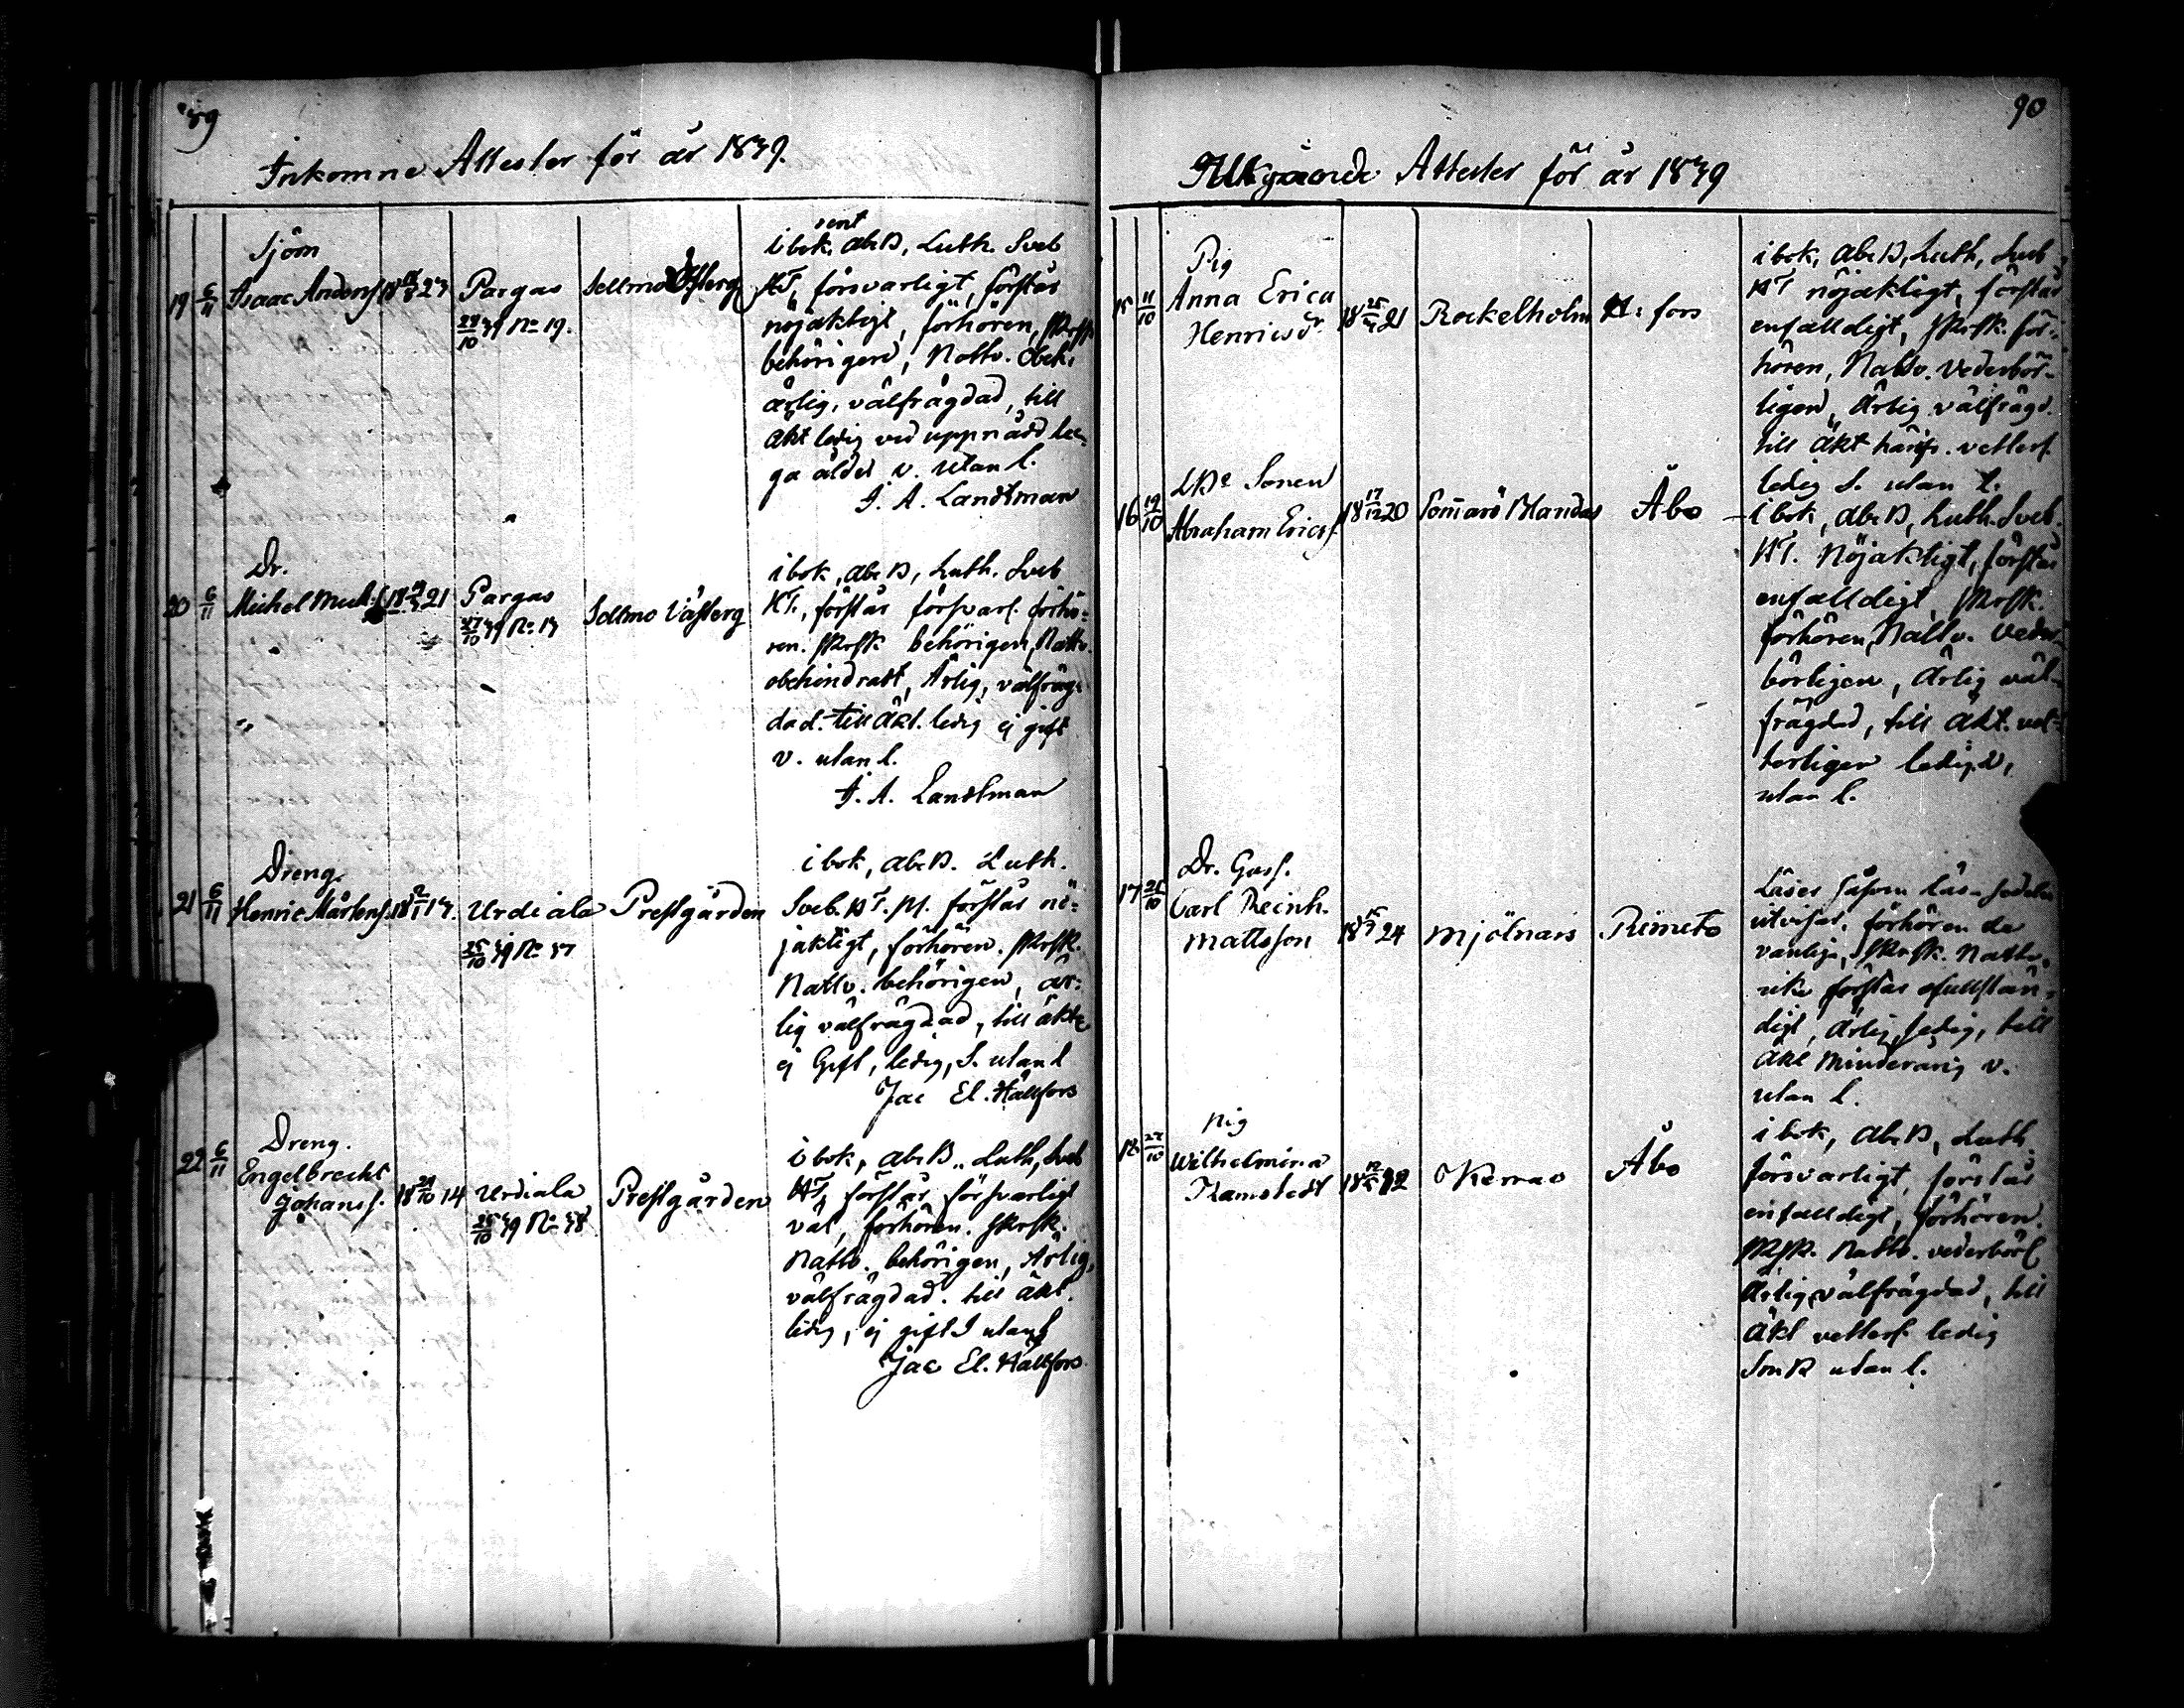 89
Inkomne Attester för år 1839.
19 6/11
Sjöm
Isaac Anders.
Pargas
29/10 39 No 19.
Sellmo Östberg
rent
i bok. Abc B, Luth. Sveb
HT, försvarligt, förstår
nöjaktigt, förhören, Skrsk
behörigen, Nattv. Obeh.
ärlig, välfrägdad, till
äkt ledig vid uppnådd la-
ga ålder v. utan l.
F. A. Landtman
20 6/11
Dr.
Michel Mich.s.
Pargas
27/10 39 No 13
Sellmo Västerg
i bok, Abc B, Luth. Sveb
HT, förstår försvarl. förhö-
ren. Skrsk behörigen, Nattv.
obehindradt, Ärlig, välfräg-
dad. till Äkt. ledig ej gift
v. utan l.
F. A. Landtman
21 6/11
Dreng.
Henric Mårtens.
Urdiala
25/10 39 No 37
Prestgården
i bok, Abc B. Luth.
Sveb. HT. förstår nö-
jaktigt, förhören. Skrsk.
Nattv. behörigen, är-
lig välfrägdad, till äkt
ej Gift, ledig, S. utan l
Jac El. Hällfors
22 6/11
Dreng.
Engelbrecht
Johans.
18 29/10 14
Urdiala
25/10 39 No 38
Prestgården
i bok, Abc B., Luth, Sveb
HT, förstår försvarligt
väl, förhören. Skrsk.
Nattv. behörigen, Ärlig,
välfrägdad. till äkt.
ledig, ej gift S utan l
Jac El. Hällfors
90
Utgående Attester för år 1839
15 11/10
Pig
Anna Erica
Henricsdr
Rockelholm
H:fors
i bok, Abc B, Luth, Sveb
HT nöjaktigt, förstår
enfalldigt, Skrsk. för-
hören, Nattv. vederbör-
ligen, Ärlig välfrägd.
till äkt härifr. vetterl.
ledig S. utan l.
16 19/10
Sonen
Abraham Erics.
18 17/12 20
Somarö
Åbo
i bok, Abc B, Luth. Sveb.
HT. Nöjaktigt, förstår
enfalldigt, Skrsk.
förhören, Nattv. veder-
börligen, Ärlig väl-
frägdad, till Äkt. vet-
terligen ledig, v,
utan l.
17 21/10
Dr. Goss.
Carl Reinh.
Mattsson
Mjölnars
Rimeto
Läser såsom läse sedeln
utvisar, förhören de
vanliga, Skrsk. Nattv.
icke förstår ofullstän-
digt, Ärlig, ledig, till
Äkt Minderårig v.
utan l.
18 24/10
Pig
Wilhelmina
Ramstedt
Kerrao
Åbo
i bok, Abc B, Luth
försvarligt, förstår
enfalldigt, förhören.
Skrsk. Nattv. vederbörl
Ärlig, välfrägdad, till
Äkt vetterl. ledig
utan l.